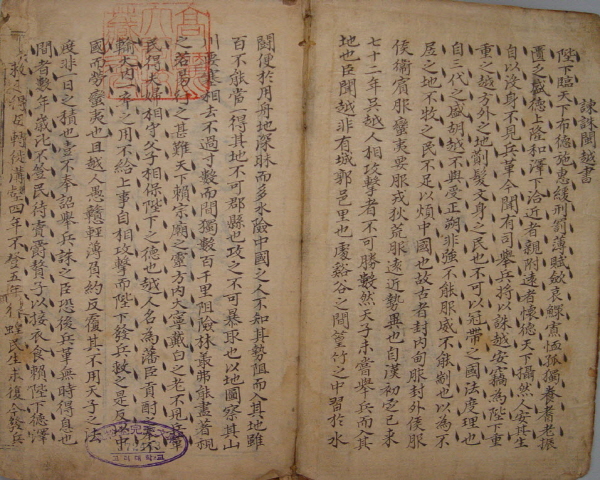 諫閩越書
陛下臨天下布德施惠緩刑罰薄賦斂哀鰥寡恤孤獨養耆老振
匱乏盛德上隆和澤下洽近者親附遠者懷德天下攝然人安其生
自以沒身不見兵革今聞有司擧兵將以誅越安竊為陛下重
重之越方外之地劗髮文身之民也不可以冠帶之國法度理也
自三代之盛胡越不與受正朔非强不能服威不能制也以為不
居之地不牧之民不足以煩中國也故古者封内甸服封外侯服
侯衛賓服蠻夷要服戎狄荒服遠近勢異也自漢初定已来
七十二年吳越人相攻擊者不可勝數然天子未嘗擧兵而入其
地也臣聞越非有城郭邑里也處谿谷之間篁竹之中習於水
鬪便於用舟地深昧而多水險中國之人不知其勢阻而入其地雖
百不能當一得其地不可郡縣也攻之不可暴取也以地圖察其山
川要塞相去不過寸數而間獨數百千里阻險林叢弗能盡著視
之若易行之甚難天下賴宗廟之靈方内大寧戴白之老不見兵革
民得夫婦相守父子相保陛下之德也越人名為藩臣貢酎之奉不
輸大内一卒之用不給上事自相攻擊而陛下發兵救之是反以中
國而勞蠻夷也且越人愚戇輕薄負約反覆其不用天子之法
度非一日之積也壹不奉詔擧兵誅之臣恐後兵革無時得息也
間者數年歲比不登民待賣爵贅子以接衣食賴陛下德澤
救之得毋轉徙溝壑四年不登五年復蝗民生未復今發兵
고려대학교